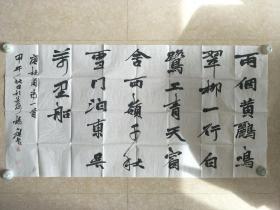 兩個黃鸝鳴
翠柳一行白
鷺上青天窗
含西嶺千秋
雪門泊東吳
萬里船
唐杜甫詩一首
甲午